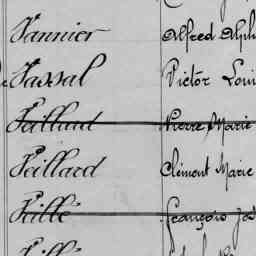 Vannier Alfred Alph
Vassal Victor Loui
Veillard Pierre Marie
Veillard Clément Marie
Veillé François Jos